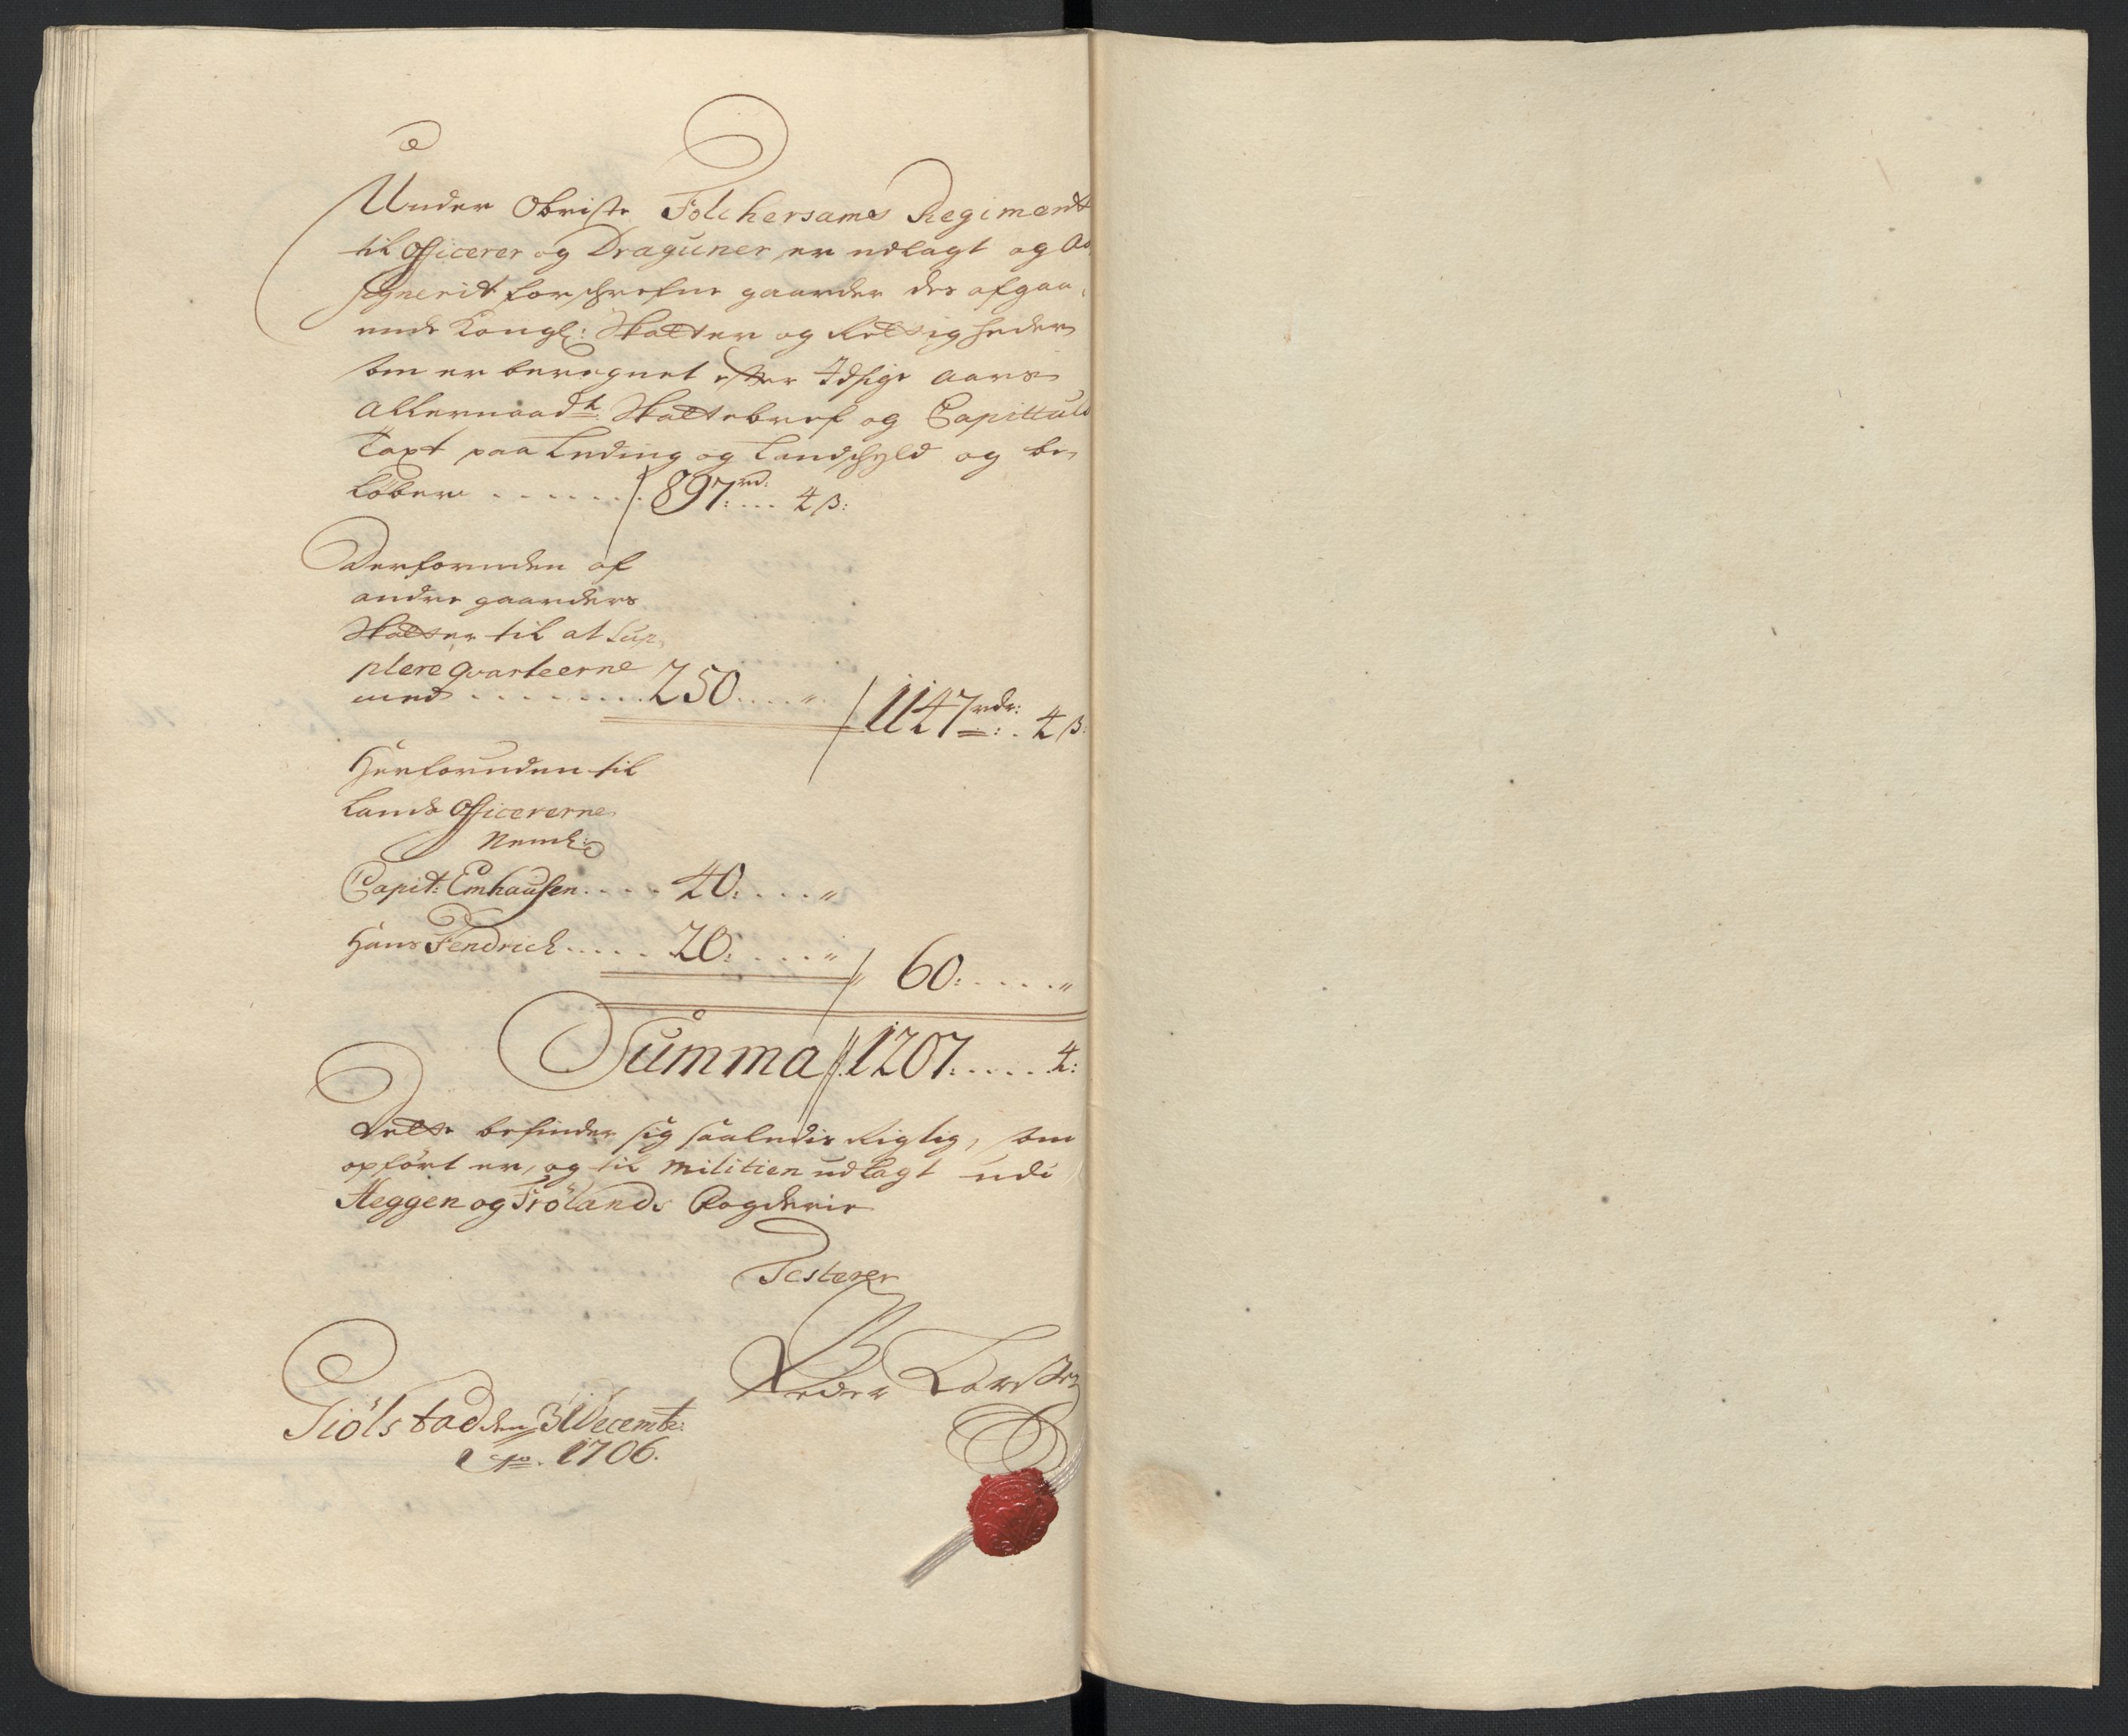 Under Obriste Folchersams Regimendt
til Officerer og Draguner, er udlagt og As
signerit forschrefne gaarder des afgaa,
ende Kongl: Skatter og Retsigheder
som er beregnet efter Idsige aars
Allernaadl: Skattebref og Capittuls
Taxt paa Leding og Landschyld og be,
løber . . . . . . 897 rd: . . . 4 β:
Derforuden af
andre gaarders
Skatter til at Sup,
plere qvarteerne
med . . . . . . . . 250 . . . . „ 1147 rdr: . 4 β:
Herforuden til
Lands Officererne
Neml:
Capit: Emhausen . . . . 40: . . . „
Hans Fendrich . . . . . 20: . . . . „ 60: . . . . „
Summa 1207: . . . . 4:
Dette befindes sig saaledis Rigtig, som
opført er, og til militien udlagt udi
Heggen og Frølands Fogderie
Testerer
Peder Larsen
Giölstad den 31 Decembr:
Ao. 1706.